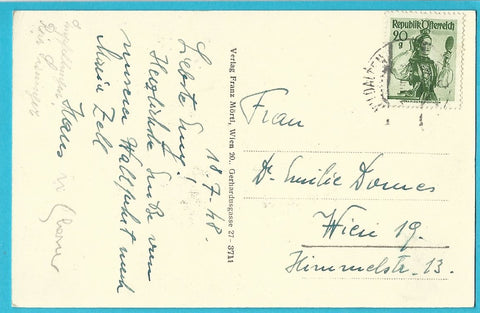 18.7.48.
Liebste Emy!
Herzlichste Grüße von
unserer Wallfahrt nach
Maria Zell
Hans
Verlag Franz Mörtl, Wien 20, Gerhardusgasse 27 - 3711
Republik Österreich
20
g
Frau
Dr. Emilie Domes
Wien 19.
Himmelstr. 13.